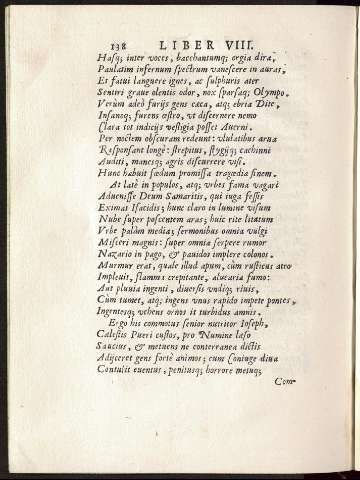 138 LIBER VIII.
Hasq; inter voces, bacchantumq; orgia dira,
Paulatim infernum spectrum vanescere in auras,
Et fatui languere ignes, ac sulphuris ater
Sentiri graue olentis odor, nox sparsaq; Olympo.
Verùm adeò furijs gens cæca, atq; ebria Dite,
Insanoq; furens œstro, vt discernere nemo
Clara tot indicijs vestigia posset Auerni.
Per noctem obscuram redeunt: vlulatibus arua
Responsant longè: strepitus, stygijq; cachinni
Auditi, manesq; agris discurrere visi.
Hunc habuit fœdum promissa tragœdia finem.
At latè in populos, atq; vrbes fama vagari
Aduenisse Deum Samaritis, qui iuga fessis
Eximat Isacidis; hunc claro in lumine visum
Nube super poscentem aras; huic rite litatum
Vrbe palàm media; sermonibus omnia vulgi
Misceri magnis: super omnia serpere rumor
Nazario in pago, & pauidos implere colonos.
Murmur erat, quale illud apum, cùm rusticus atro
Impleuit, flammis crepitante, aluearia fumo:
Aut pluuia ingenti, diuersis vndiq; riuis,
Cùm tumet, atq; ingens vnus rapido impete pontes,
Ingentesq; vehens ornos it turbidus amnis.
Ergo his commotus senior nutritor Ioseph,
Cælestis Pueri custos, pro Numine læso
Saucius, & metuens ne conterranea dictis
Adijceret gens fortè animos; cum Coniuge diua
Contulit euentus, penitusq; horrore metuq;
Com-